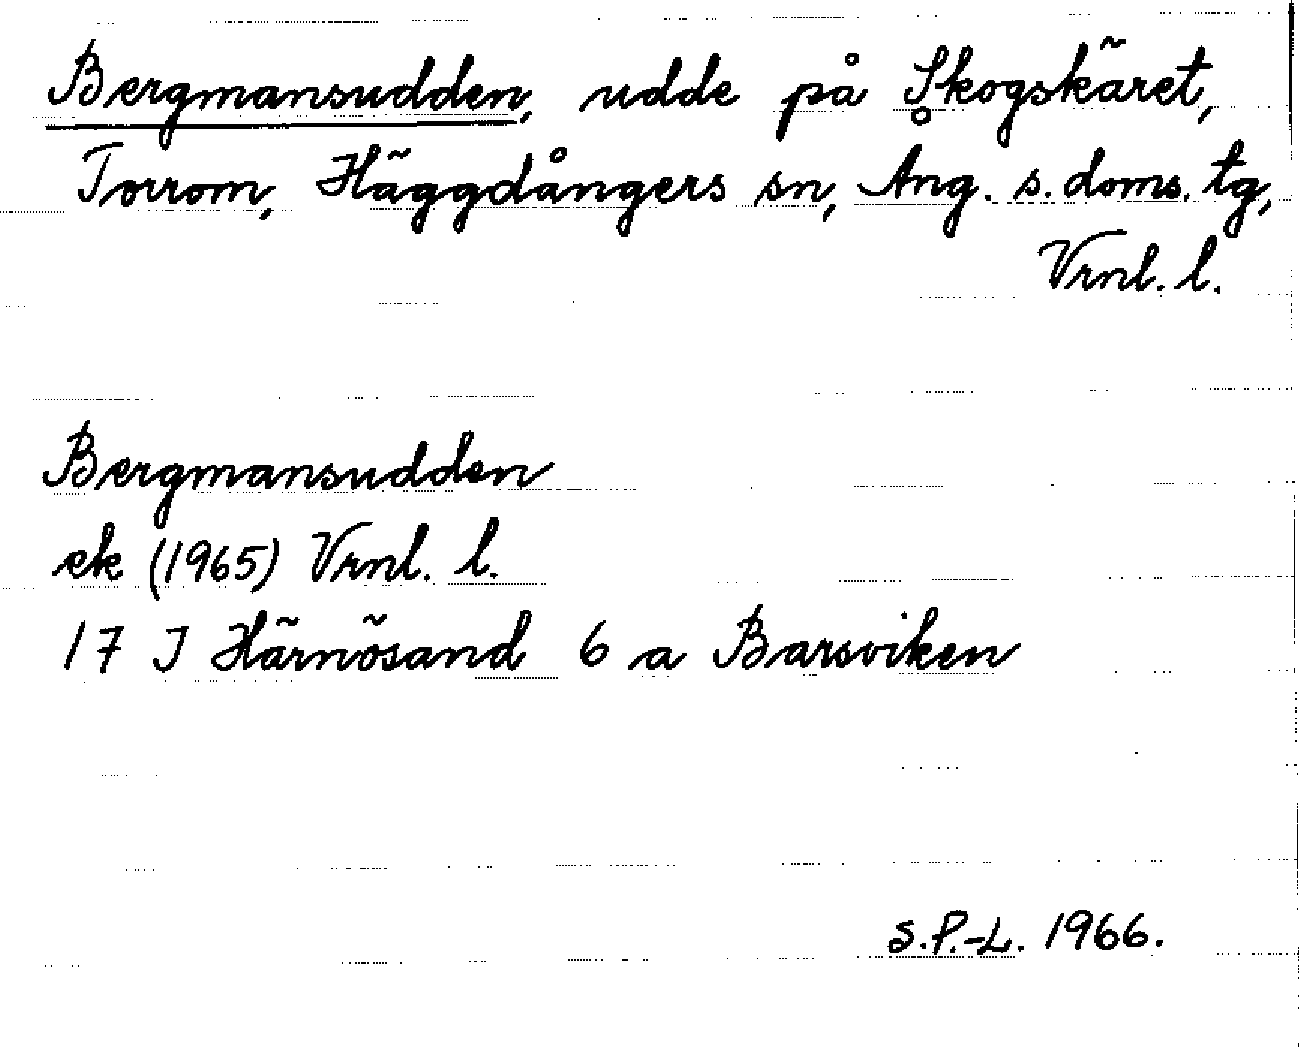 Bergmansudden, udde på Skogskäret,
Torrom, Häggdångers sn, Ång. s. doms. tg,
Vrnl. l.
Bergmansudden
ek (1965) Vrnl. l.
17 I Härnösand 6 a Barsviken
S.P.-L. 1966.